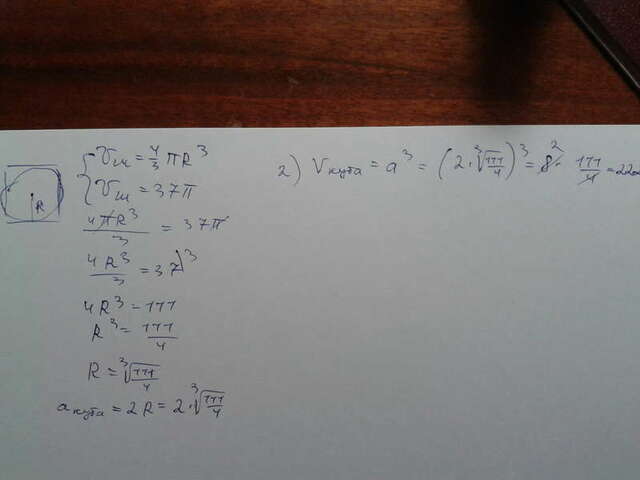 R
Vш = 4/3 πR³
Vш = 37π
4πR³/3 = 37π
4R³/3 = 37 )3
4R³ = 111
R³ = 111/4
R = ³√(111/4)
a куба = 2R = 2·³√(111/4)
2) Vкуба = a³ = (2·³√(111/4))³ = 8² · 111/4 = 222